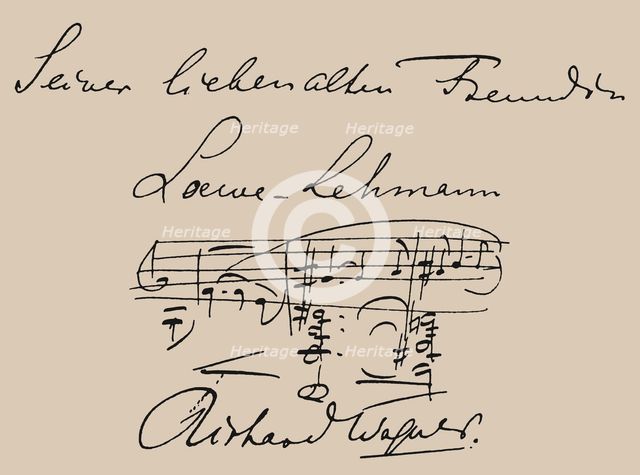 Seiner lieben alten Freundin
Heritage Heritage
Loewe-Lehmann
©
Heritage Heritage
Heritage Heritage
Richard Wagner.